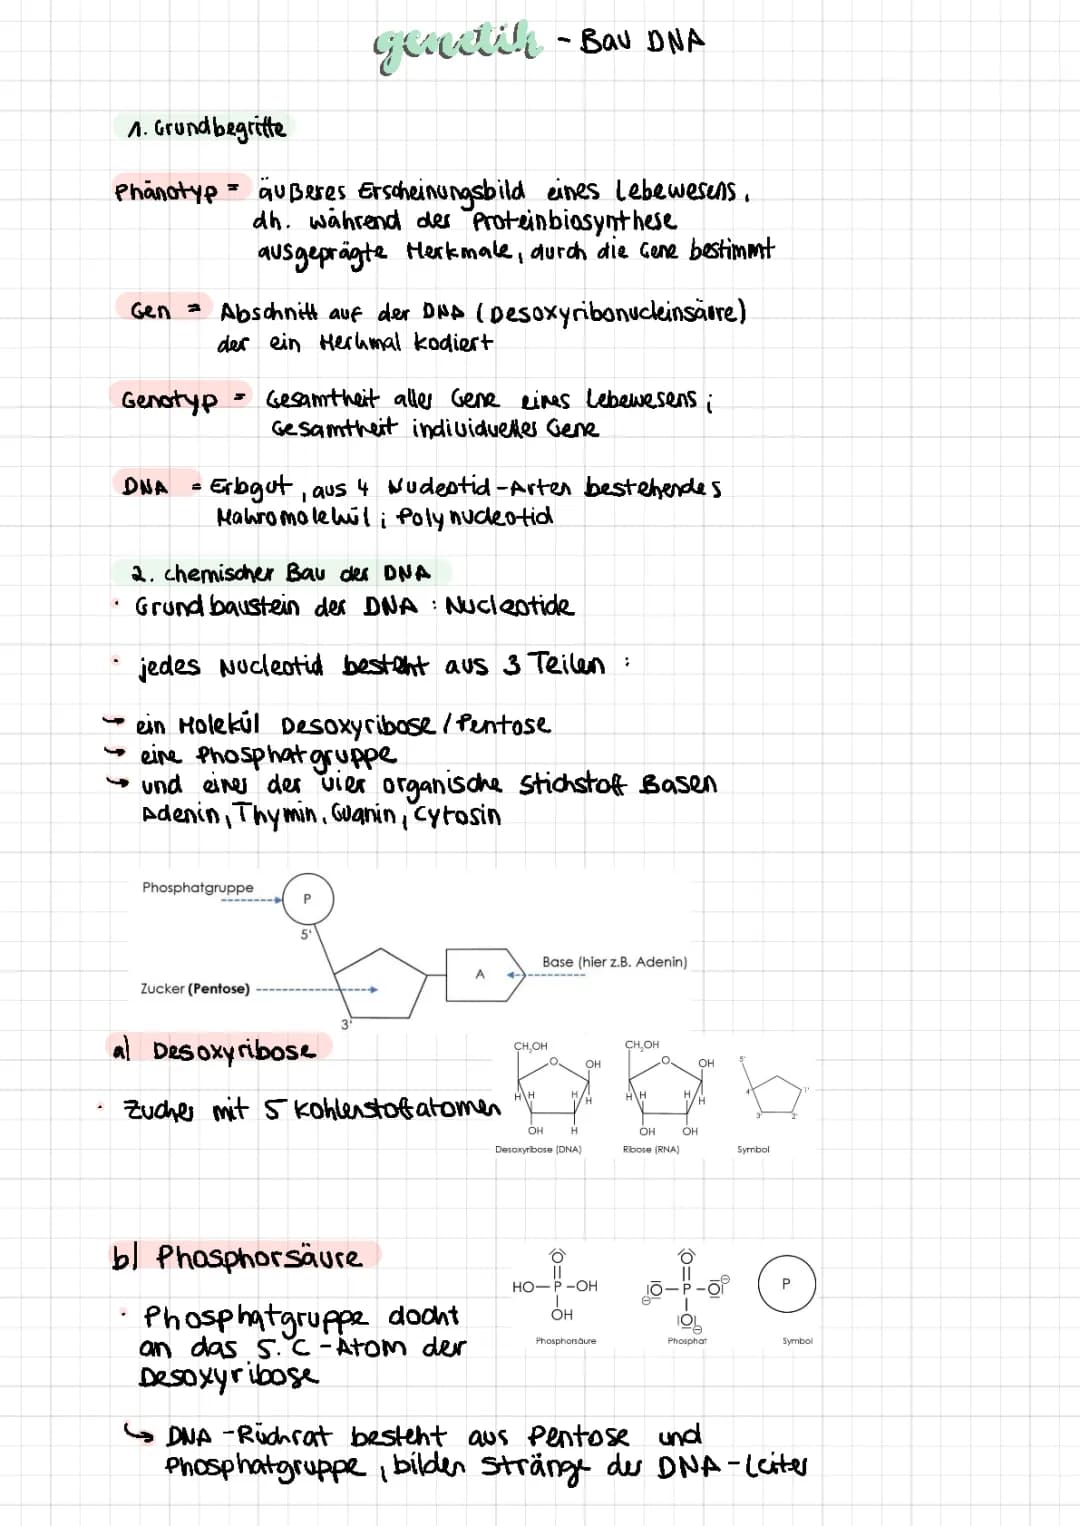 genetik - Bau DNA
1. Grundbegriffe
Phänotyp = äußeres Erscheinungsbild eines Lebewesens,
dh. während der Proteinbiosynthese
ausgeprägte Merkmale, durch die Gene bestimmt
Gen = Abschnitt auf der DNA (Desoxyribonucleinsäure)
der ein Merkmal kodiert
Genotyp = Gesamtheit aller Gene eines Lebewesens ;
Gesamtheit individueller Gene
DNA = Erbgut, aus 4 Nucleotid-Arten bestehendes
Makromolekül ; Polynucleotid
2. chemischer Bau der DNA
· Grundbaustein der DNA : Nucleotide
· jedes Nucleotid besteht aus 3 Teilen :
↪ ein Molekül Desoxyribose / Pentose
↪ eine Phosphatgruppe
↪ und einer der vier organische Stickstoff Basen
Adenin, Thymin, Guanin, Cytosin
Phosphatgruppe
P
5'
Base (hier z.B. Adenin)
A
Zucker (Pentose)
3'
a) Desoxyribose
· Zucker mit 5 Kohlenstoffatomen
CH₂OH
O
OH
H H H H
OH H
Desoxyribose (DNA)
CH₂OH
O
OH
H H H H
OH OH
Ribose (RNA)
5'
4' 1'
3' 2'
Symbol
b) Phosphorsäure
O
HO-P-OH
OH
Phosphorsäure
O
|O-P-O|
|O|
Phosphat
P
Symbol
· Phosphatgruppe dockt
an das 5. C-Atom der
Desoxyribose
↪ DNA-Rückrat besteht aus Pentose und
Phosphatgruppe, bilden Stränge der DNA-Leiter